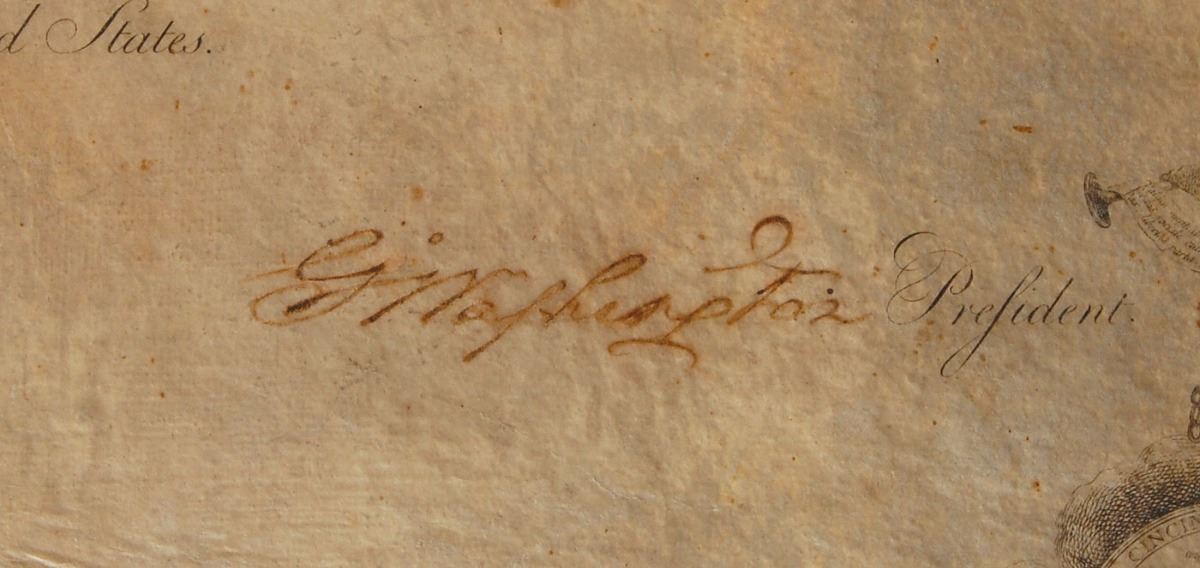 d States.
G:Washington Preſident.
CINCI